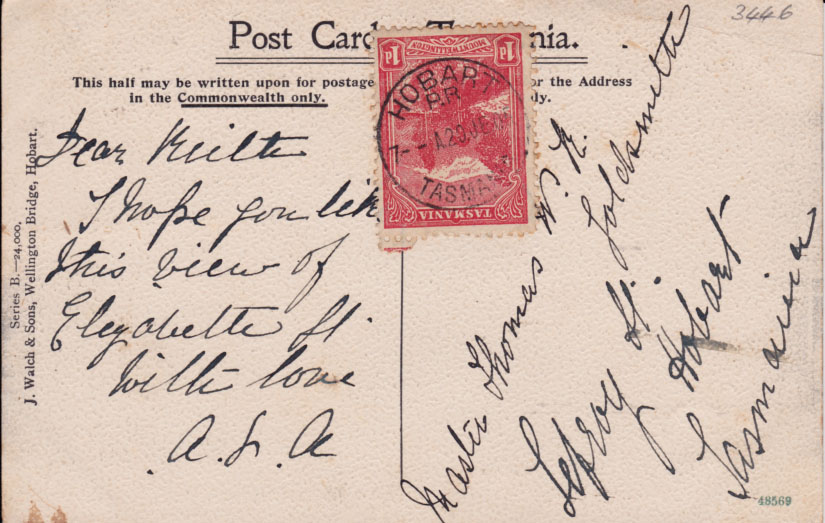 3446
Post Card Tasmania.
This half may be written upon for postage
in the Commonwealth only.
or the Address
ly.
1d MOUNT WELLINGTON 1d
TASMANIA
HOBART
TASMA
Series B.—24,000.
J. Walch & Sons, Wellington Bridge, Hobart.
Dear Keith
I hope you lik
this view of
Elizabeth St.
With love
A. L. A
Master Thomas W. K. Goldsmith
Lefroy St.
Hobart
Tasmania
48569